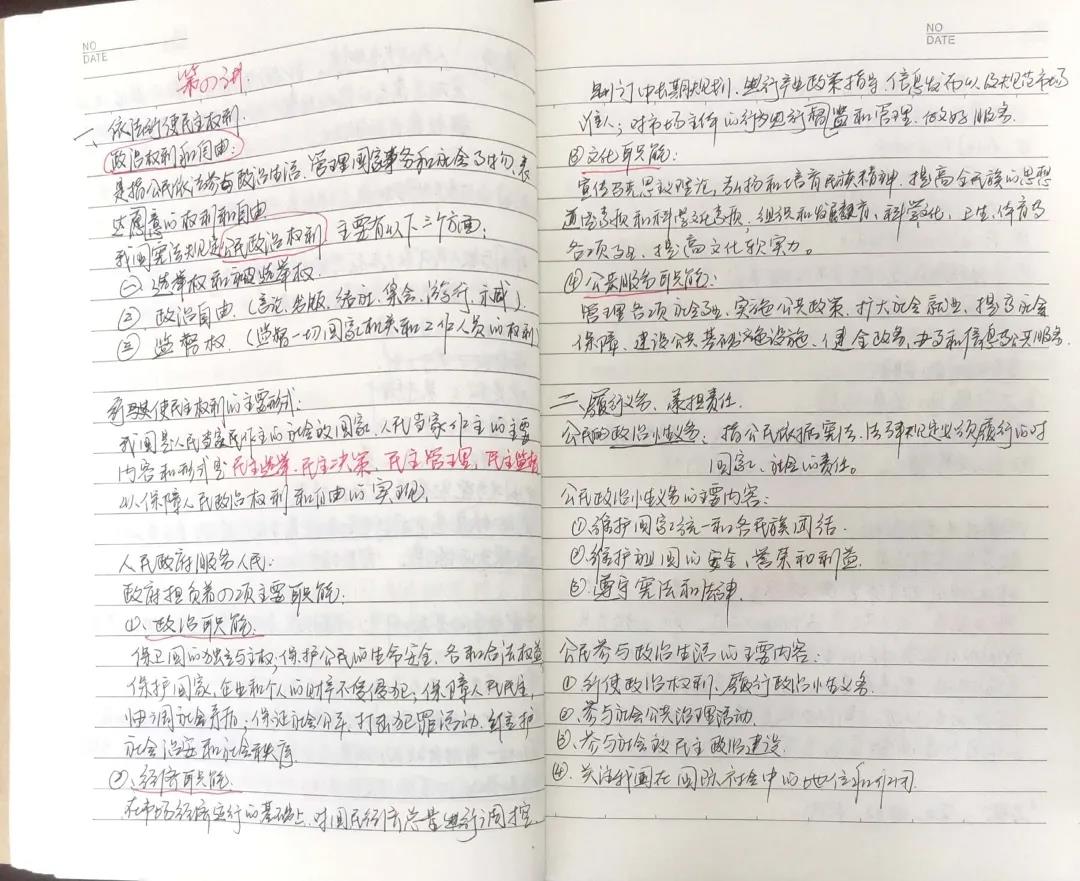 NO
DATE
第04讲.
一、依法行使民主权利.
政治权利和自由:
是指公民依法参与政治生活、管理国家事务和社会事物、表
达愿意的权利和自由
我国宪法规定公民政治权利 主要有以下三个方面:
㊀ 选举权和被选举权.
㊁ 政治自由.(言论、出版、结社、集会、游行、示威).
㊂ 监督权.(监督一切国家机关和工作人员的权利)
行使民主权利的主要形式:
我国是人民当家民主的社会政国家,人民当家作主的主要
内容和形式是民主选举、民主决策、民主管理、民主监督
以保障人民政治权利和自由的实现.
人民政府服务人民:
政府担负着4项主要职能:
①、政治职能.
保卫国的独立与主权;保护公民的生命安全、各和合法权益
保护国家、企业和个人的财产不受侵犯;保障人民民主,
协调社会矛盾;保证社会公平、打击犯罪活动、维护
社会治安和社会秩序.
②、经济职能.
在市场经济运行的基础上,对国民经济总量进行调控
NO
DATE
制订中长期规划、进行产业政策指导、信息发布以及规范市场
准入;对市场主体的行为进行监和管理、做好服务.
③文化职能:
宣传马克思议理论,弘扬和培育民族精神、提高全民族的思想
道德素质和科学文化素质,组织和发展教育、科学文化、卫生、体育等
各项事业、提高文化软实力。
④公共服务职能:
管理各项社会事业、实施公共政策、扩大社会就业、提高社会
保障、建设公共基础设施、健全政务、办事和信息等公共服务.
二、履行义务、承担责任.
公民的政治性义务:指公民依据宪法、法律规定必须履行的对
国家、社会的责任。
公民政治性义务的主要内容:
①、维护国家统一和各民族团结.
②、维护祖国的安全、荣誉和利益.
③、遵守宪法和法律.
公民参与政治生活的主要内容:
①、行使政治权利、履行政治性义务.
②、参与社会公共治理活动.
③、参与社会政民主政治建设.
④、关注我国在国际社会中的地位和作用.